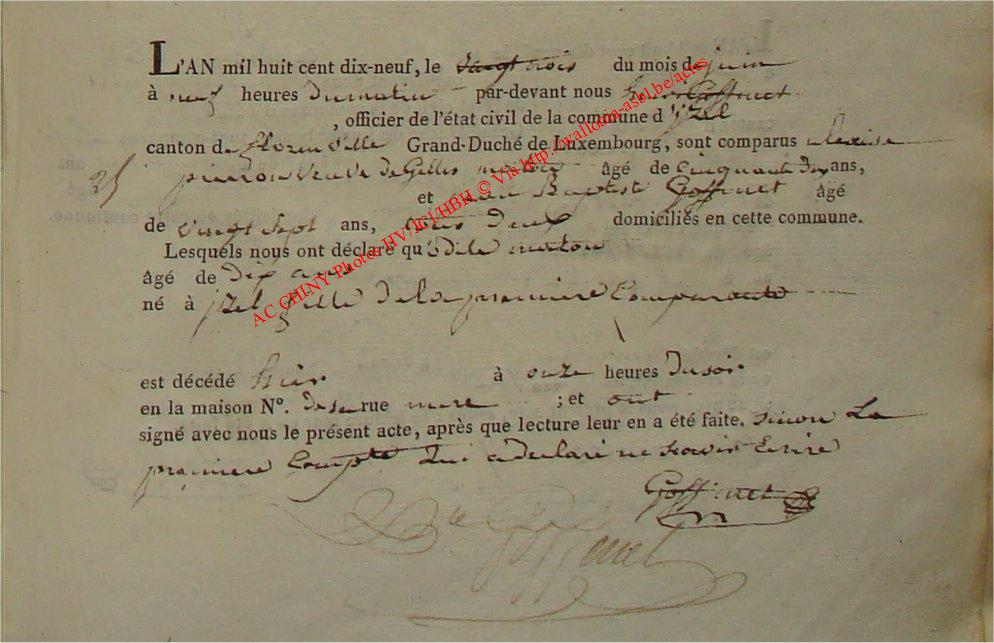 L'AN mil huit cent dix-neuf, le vingt trois du mois de juin
à neuf heures du matin par-devant nous Goffinet
, officier de l'état civil de la commune d'jzel
canton de florenville Grand-Duché de Luxembourg, sont comparus
pierson veuve de Gilles âgé de cinquante ans,
et jean Baptist Goffinet âgé
de vingt sept ans, tous deux domiciliés en cette commune.
Lesquels nous ont déclaré qu'odile
âgé de dix ans
né à jzel fille de la premiere Comparante
est décédé hier à onze heures du soir
en la maison N°. de sa rue mere ; et ont
signé avec nous le présent acte, après que lecture leur en a été faite. sinon La
premiere Compte qui a declaré ne scavoir Ecrire
Goffinet
Goffinet
AC CHINY Photos HV/JCJ/HBH © Via http://wallonia-asbl.be/actes